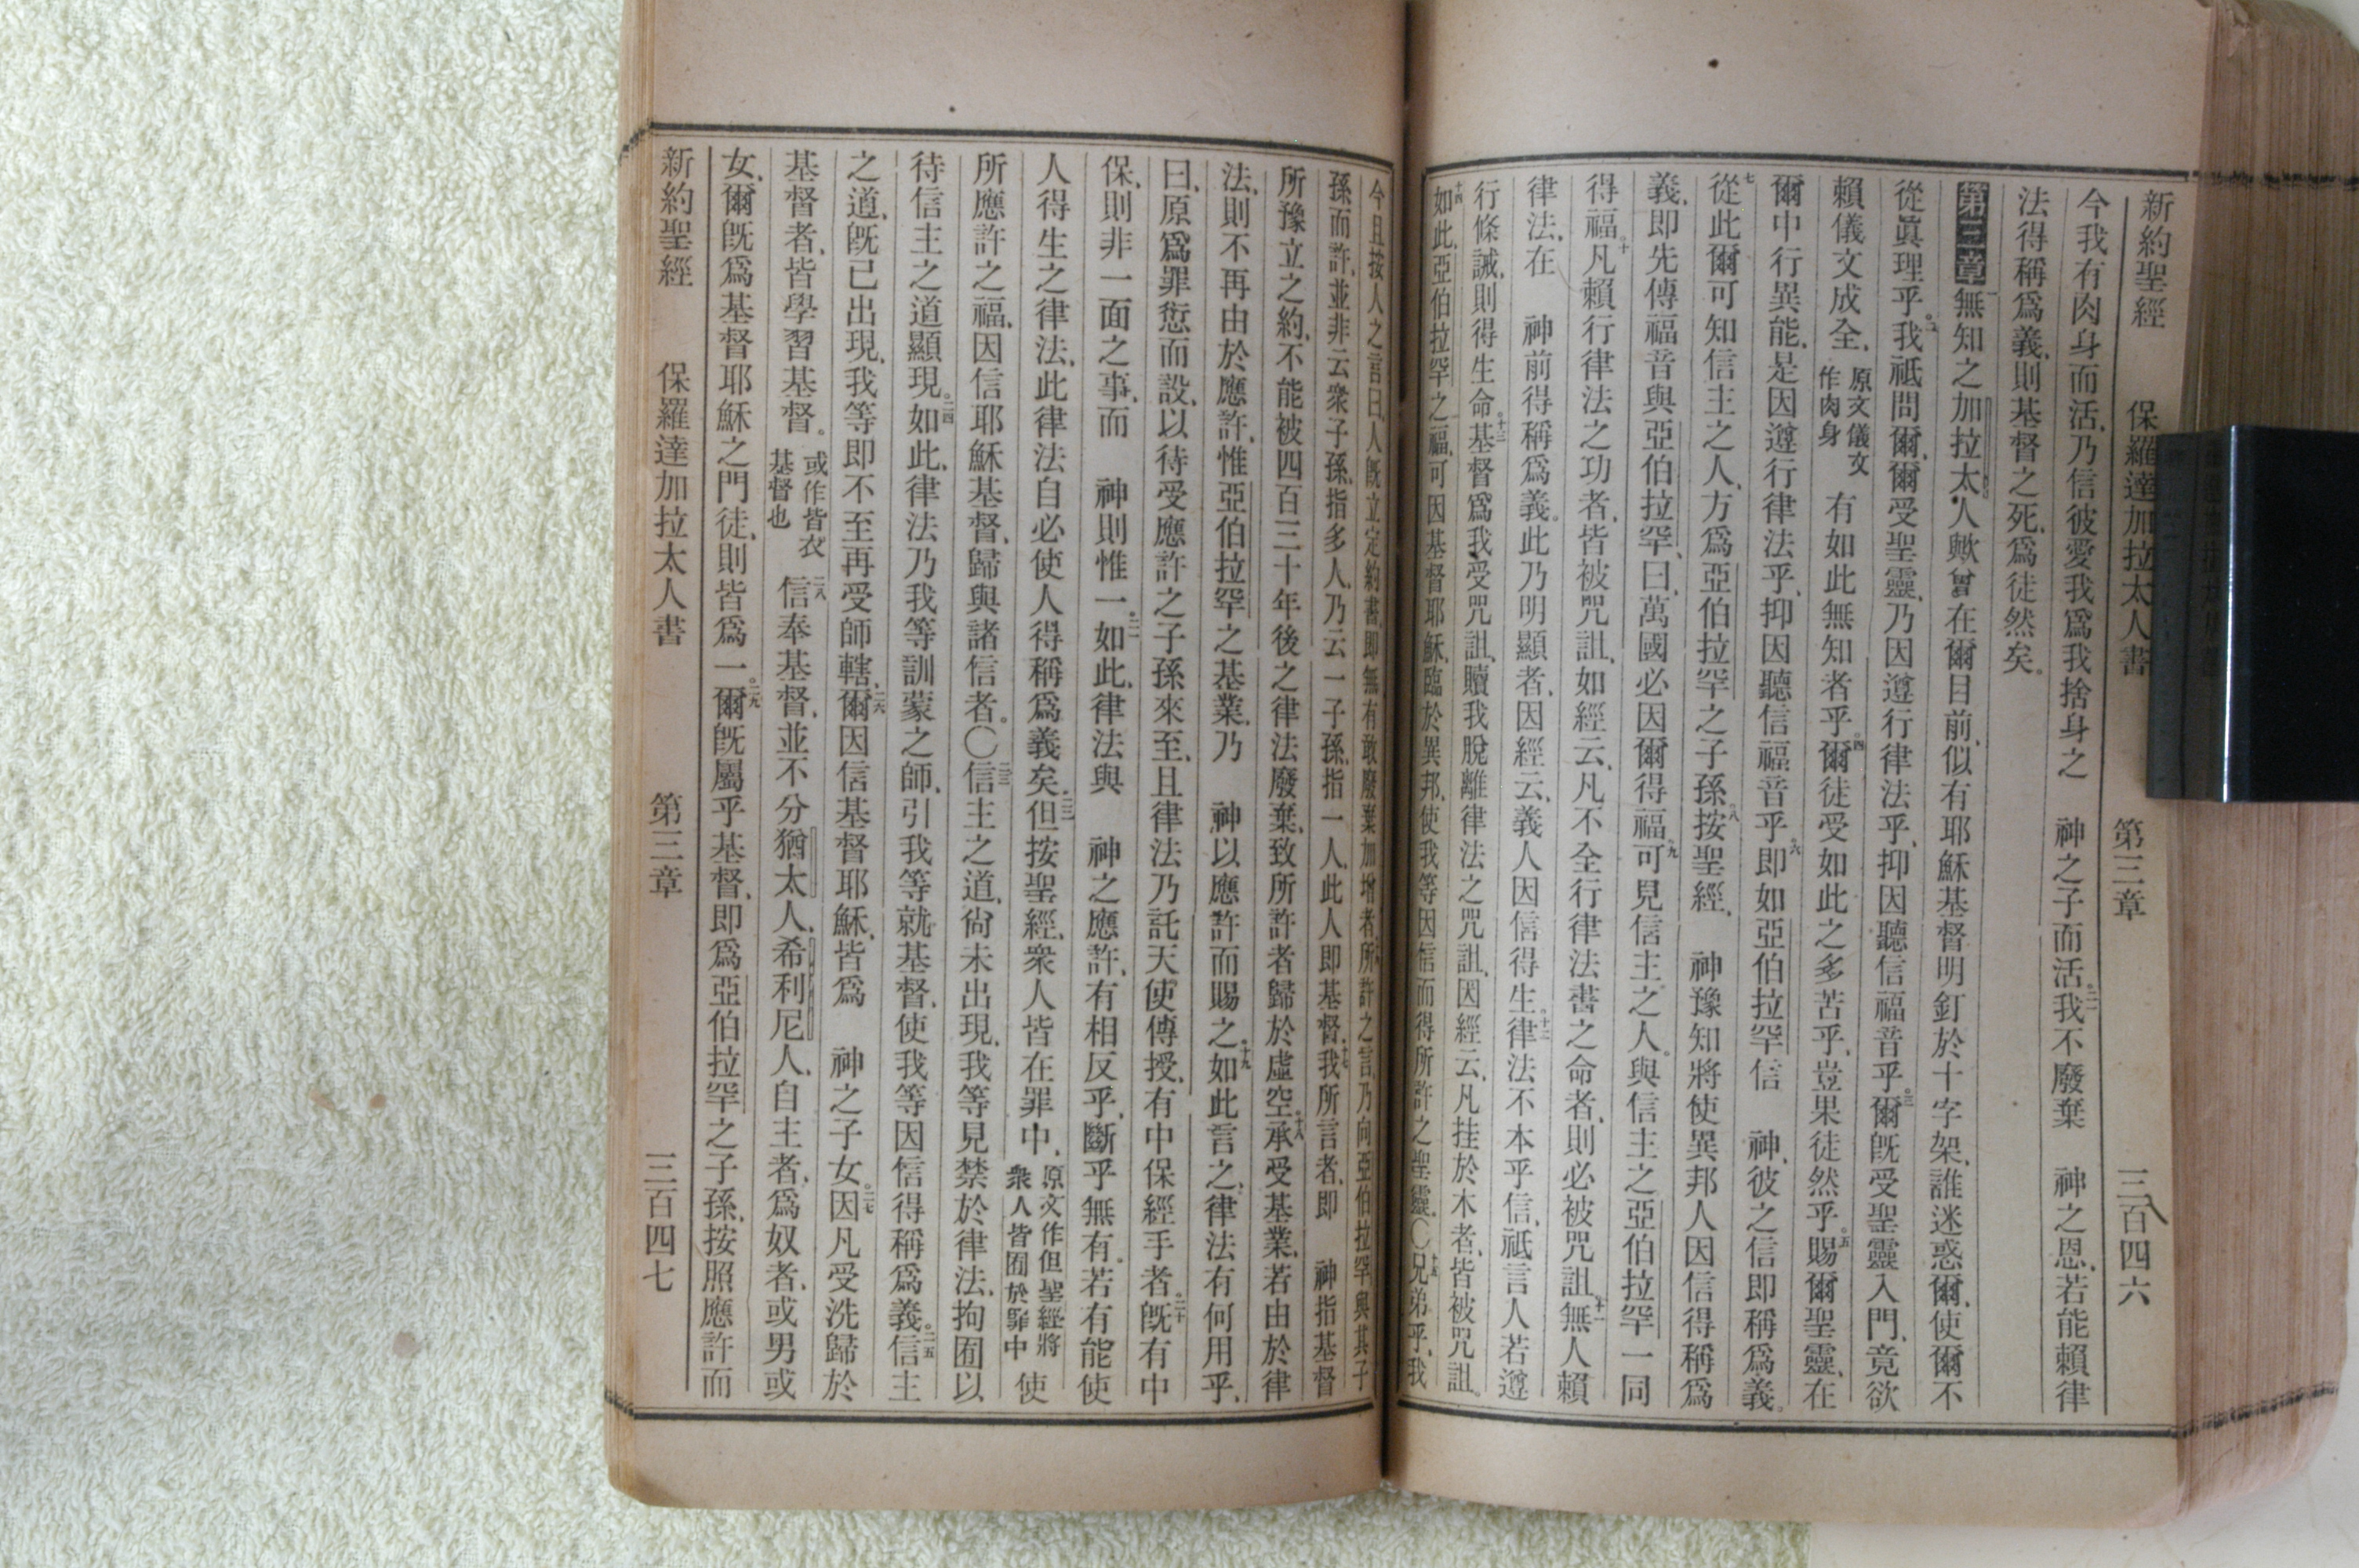 新約聖經 保羅達加拉太人書 第三章 三百四六
今我有肉身而活、乃信彼愛我爲我捨身之 神之子而活。二一我不廢棄 神之恩、若能賴律
法得稱爲義、則基督之死、爲徒然矣。
第三章 一無知之加拉太人歟、曾在爾目前、似有耶穌基督明釘於十字架、誰迷惑爾、使爾不
從眞理乎。二我祇問爾、爾受聖靈、乃因遵行律法乎、抑因聽信福音乎。三爾旣受聖靈入門、竟欲
賴儀文成全、原文儀文作肉身 有如此無知者乎。四爾徒受如此之多苦乎、豈果徒然乎。五賜爾聖靈、在
爾中行異能、是因遵行律法乎、抑因聽信福音乎。六即如亞伯拉罕信 神、彼之信即稱爲義。
七從此爾可知信主之人、方爲亞伯拉罕之子孫。八按聖經、 神豫知將使異邦人因信得稱爲
義、即先傳福音與亞伯拉罕、曰、萬國必因爾得福。九可見信主之人。與信主之亞伯拉罕一同
得福。十凡賴行律法之功者、皆被咒詛、如經云、凡不全行律法書之命者、則必被咒詛。十一無人賴
律法、在 神前得稱爲義。此乃明顯者、因經云、義人因信得生。十二律法不本乎信、祇言人若遵
行條誡、則得生命。十三基督爲我受咒詛、贖我脫離律法之咒詛、因經云、凡挂於木者、皆被咒詛。
十四如此、亞伯拉罕之福、可因基督耶穌、臨於異邦、使我等因信而得所許之聖靈。〇十五兄弟乎、我
今且按人之言曰、人旣立定約書、即無有敢廢棄加增者。十六所許之言、乃向亞伯拉罕與其子
孫而許、並非云衆子孫、指多人、乃云一子孫、指一人、此人即基督。十七我所言者、即 神指基督
所豫立之約、不能被四百三十年後之律法廢棄、致所許者歸於虛空。十八承受基業、若由於律
法、則不再由於應許、惟亞伯拉罕之基業、乃 神以應許而賜之。十九如此言之、律法有何用乎、
曰、原爲罪愆而設、以待受應許之子孫來至、且律法乃託天使傳授、有中保經手者。二十旣有中
保、則非一面之事、而 神則惟一。二一如此、律法與 神之應許、有相反乎、斷乎無有。若有能使
人得生之律法、此律法自必使人得稱爲義矣。二二但按聖經、衆人皆在罪中、原文作但聖經將衆人皆囿於罪中 使
所應許之福、因信耶穌基督、歸與諸信者。〇二三信主之道、尙未出現、我等見禁於律法、拘囿以
待信主之道顯現。二四如此、律法乃我等訓蒙之師、引我等就基督、使我等因信得稱爲義。二五信主
之道、旣已出現、我等即不至再受師轄、二六爾因信基督耶穌、皆爲 神之子女。二七因凡受洗歸於
基督者、皆學習基督。或作皆衣基督也 二八信奉基督、並不分猶太人、希利尼人、自主者、爲奴者、或男或
女、爾旣爲基督耶穌之門徒、則皆爲一。二九爾旣屬乎基督、即爲亞伯拉罕之子孫、按照應許而
新約聖經 保羅達加拉太人書 第三章 三百四七